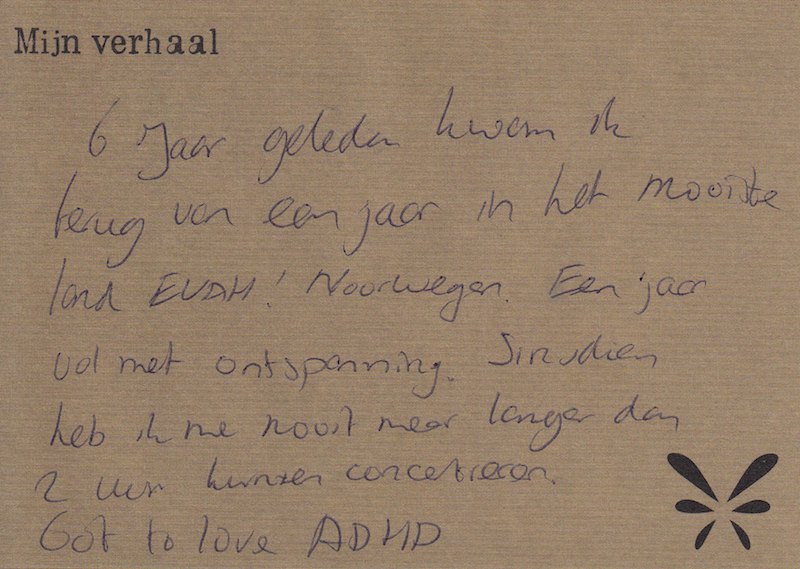 Mijn verhaal
6 Jaar geleden kwam ik
terug van een jaar in het mooiste
land EVAH! Noorwegen. Een jaar
vol met ontspanning. Sinsdien
heb ik me nooit meer langer dan
2 uur kunnen concetreren.
Got to love ADHD